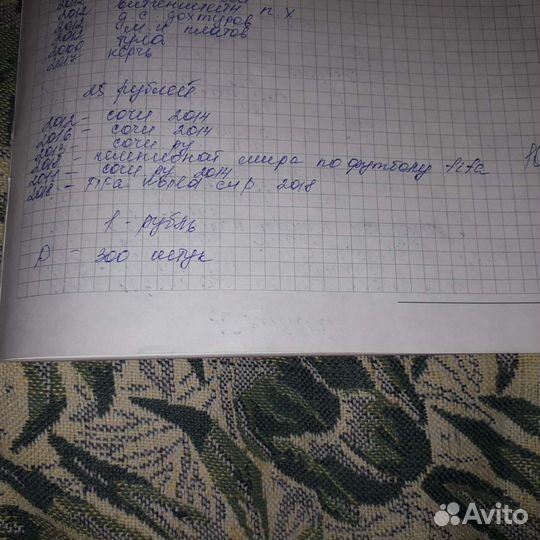 2012 витгенштейн п х
2012 д с дохтуров
2012 м и платов
тула
2000
2017 керчь
25 рублей
2012 - сочи 2014
2016 - сочи 2014
2013 - сочи ру
чемпионат мира по футболу fifa
2011 - сочи ру 2014
2018 - FIFA World cup 2018
1 - рубль
р - 300 штук
Avito